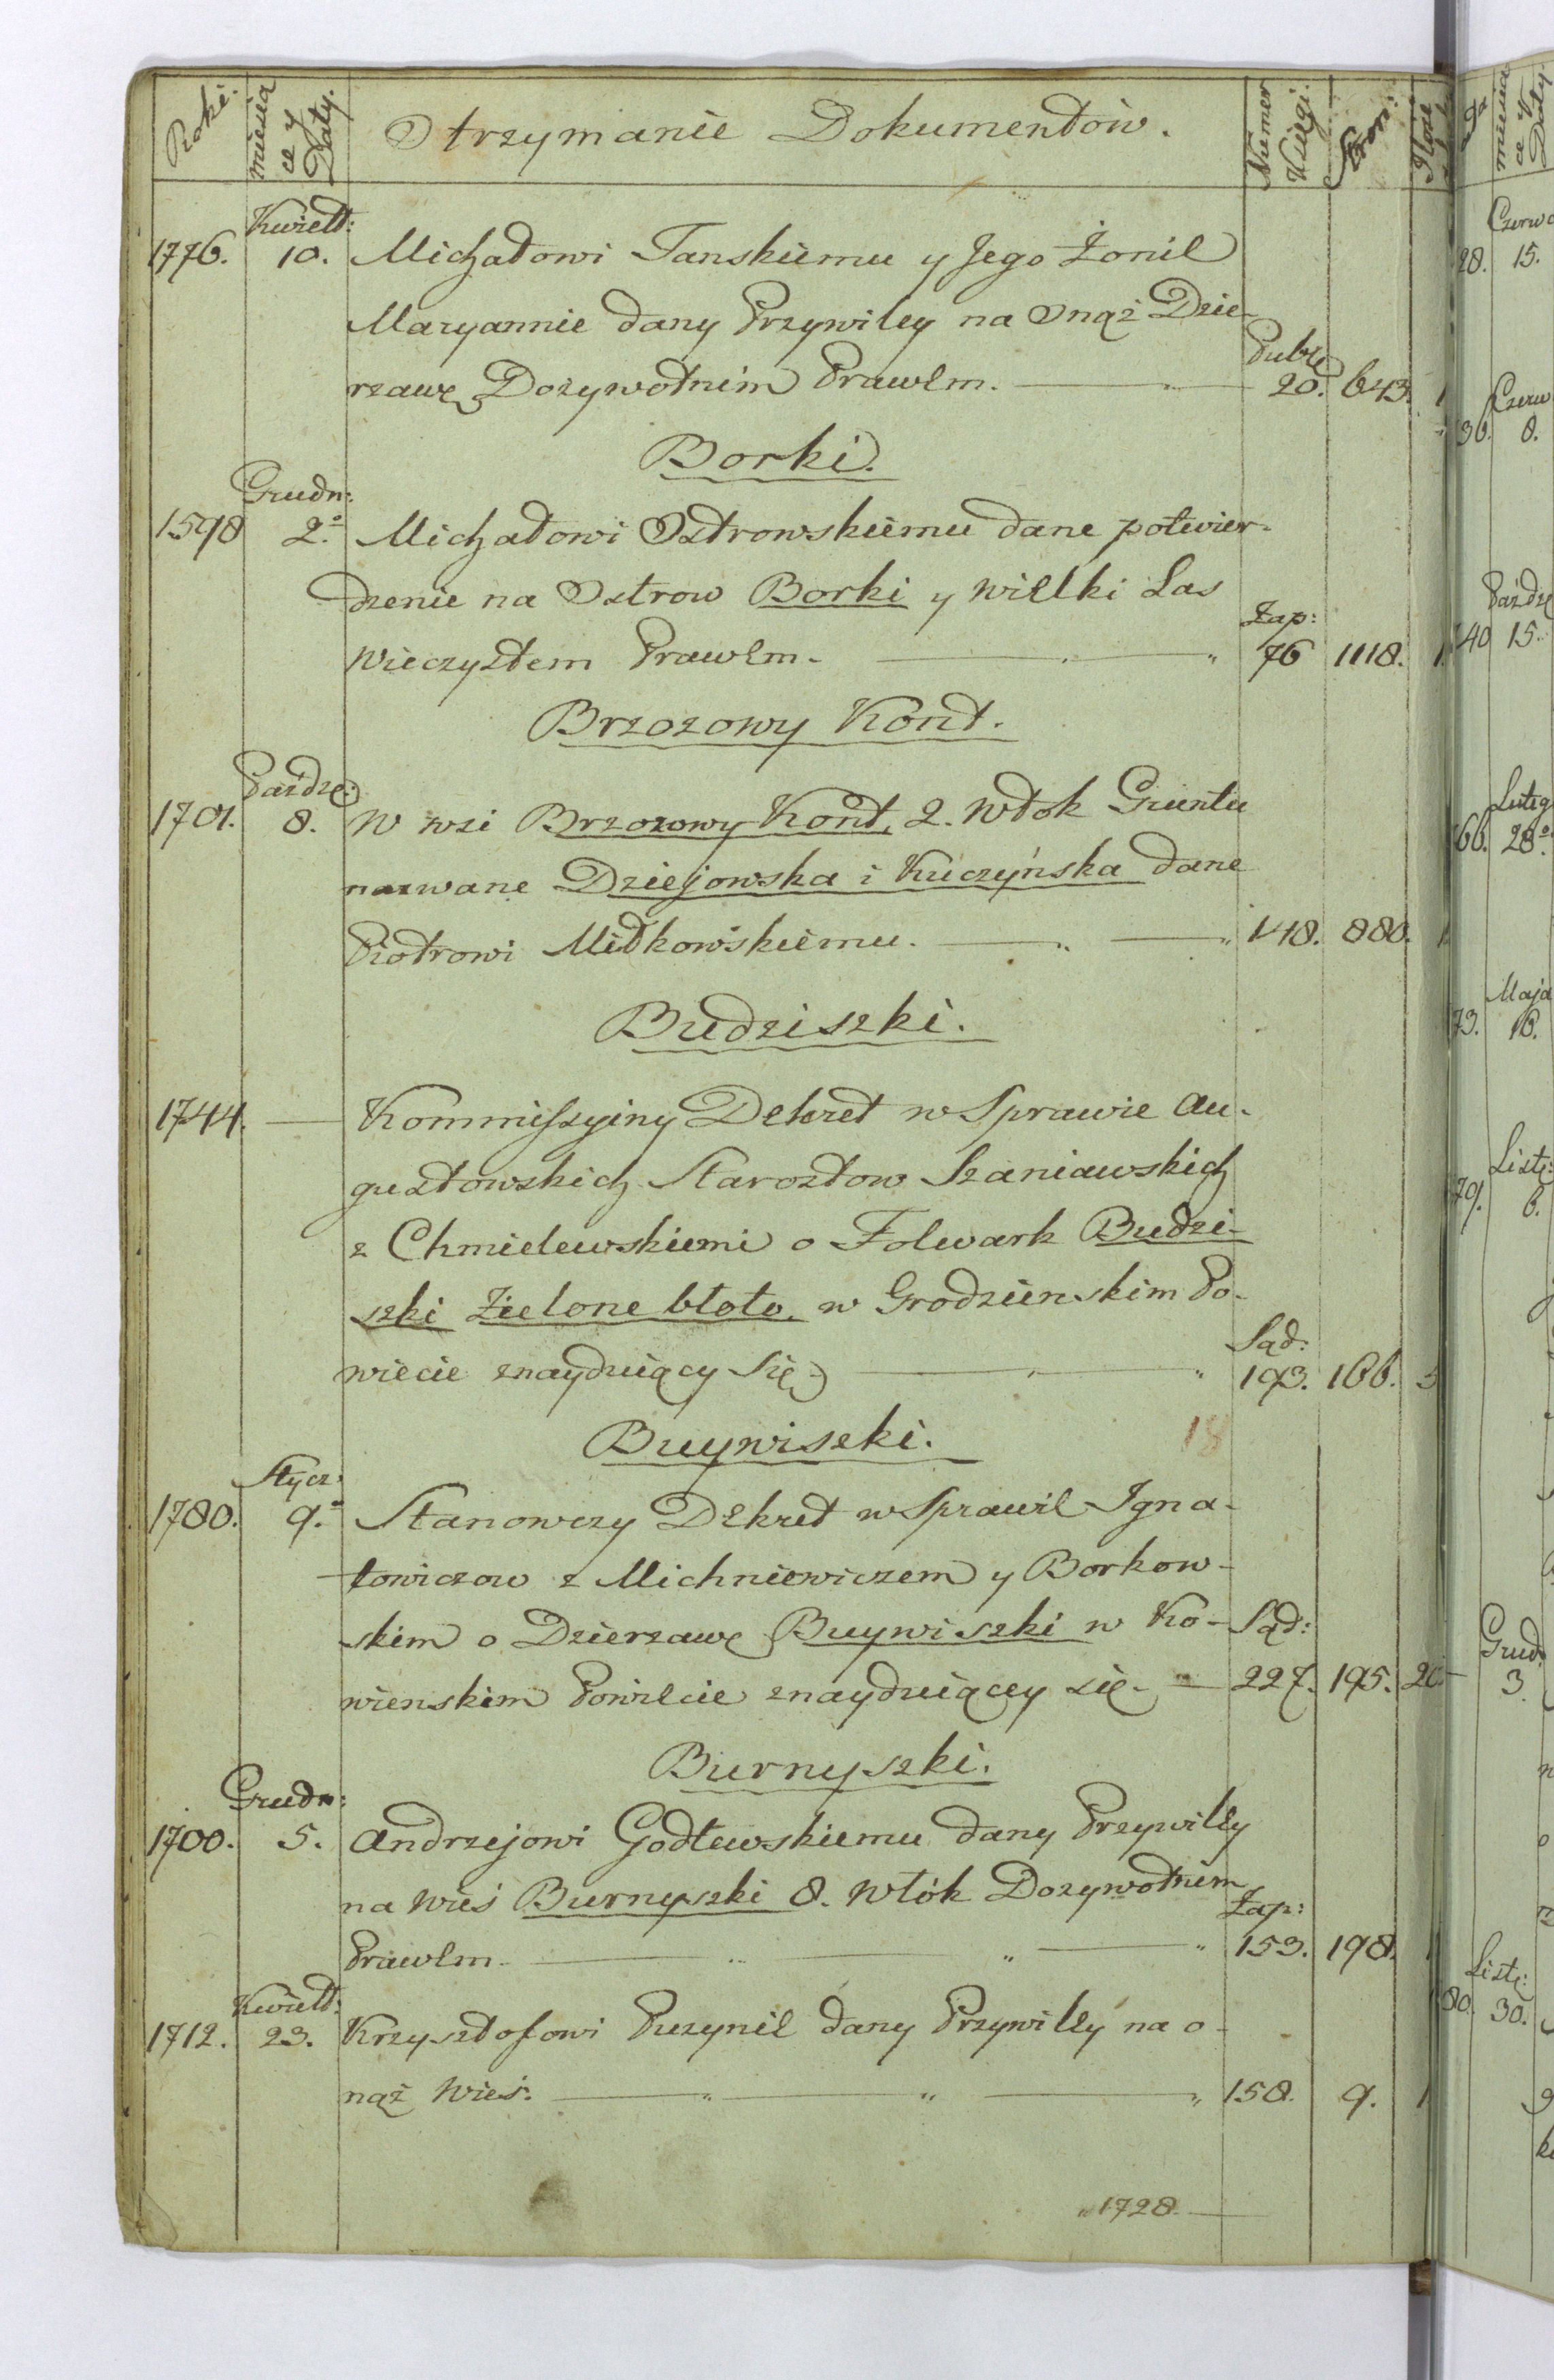 Roki. miesiące y Daty. Otrzymanie Dokumentów. Numer Xiegi. Stron:
Kwiet:
1776. 10. Michałowi Tanskiemu y Jego Żonie
Maryannie dany Przywiley na Onąż Dzie-
Publ:
rzawę Dożywotnim Prawem. 20. 643. 1
Borki.
Grudn:
1598 2.º Michałowi Ostrowskiemu dane potwier-
dzenie na Ostrow Borki y wielki Las
Zap:
Wieczystem Prawem. 76 1118. 1
Brzozowy Kont.
Paźdz:
1701. 8. W wsi Brzozowy Kont, 2. Włok Gruntu
nazwane Dziejowska i Kuczyńska dane
Piotrowi Miłkowskiemu. 148. 880. 1
Budziszki.
1744. Kommiſzyiny Dekret w Sprawie Au-
gustowskich Starostow Szaniawskich
z Chmielewskiemi o Folwark Budzi-
szki Zielone błoto, w Grodzienskim Po-
Sąd:
wiecie znayduiący Się 193. 166. 5
Buywiszki. 18
Stycz:
1780. 9.º Stanowczy Dekret w Sprawie Igna-
towiczow z Michniewiczem y Borkow-
skim o Dzierzawę Buywiszki w Ko- Sąd:
wienskim Powiecie znayduiącey się. 227. 195. 20
Burnyszki.
Grudn:
1700. 5. Andrzejowi Godlewskiemu dany Przywiley
na Wieś Burnyszki 8. Włók Dożywotnim
Zap:
Prawem. 153. 198. 1
Kwiet:
1712. 23. Krzysztofowi Puzynie dany Przywiley na o-
nąż Wieś. 158. 9. 1
1728.
miesiące y Daty
28. 15.
Czerw
36. 8.
Paźdz
40 15.
Luteg
66. 28º
Maja
73. 16.
Liste:
79. 6.
Grud
3.
Liste:
80. 30.